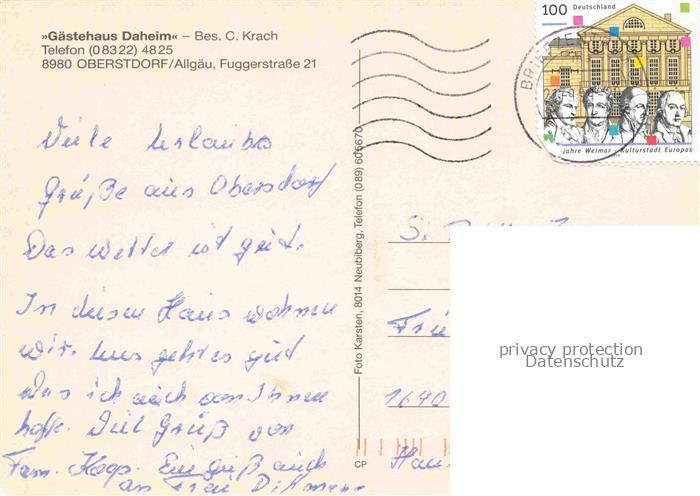 »Gästehaus Daheim« – Bes. C. Krach
Telefon (0 83 22) 48 25
8980 OBERSTDORF/Allgäu, Fuggerstraße 21
100 Deutschland
Jahre Weimar - Kulturstadt Europas
Viele Urlaubs
Grüße aus Obersdorf
Das Wetter ist gut.
In diesen Haus wohnen
wir. Uns geht es gut
was ich auch von Ihnen
hoffe. Viele Grüß von
Fam. Koop. Ein gruß auch
an Frau Dittmann
Foto Karsten, 8014 Neubiberg, Telefon (089) 606670
CP
S.
privacy protection
Datenschutz